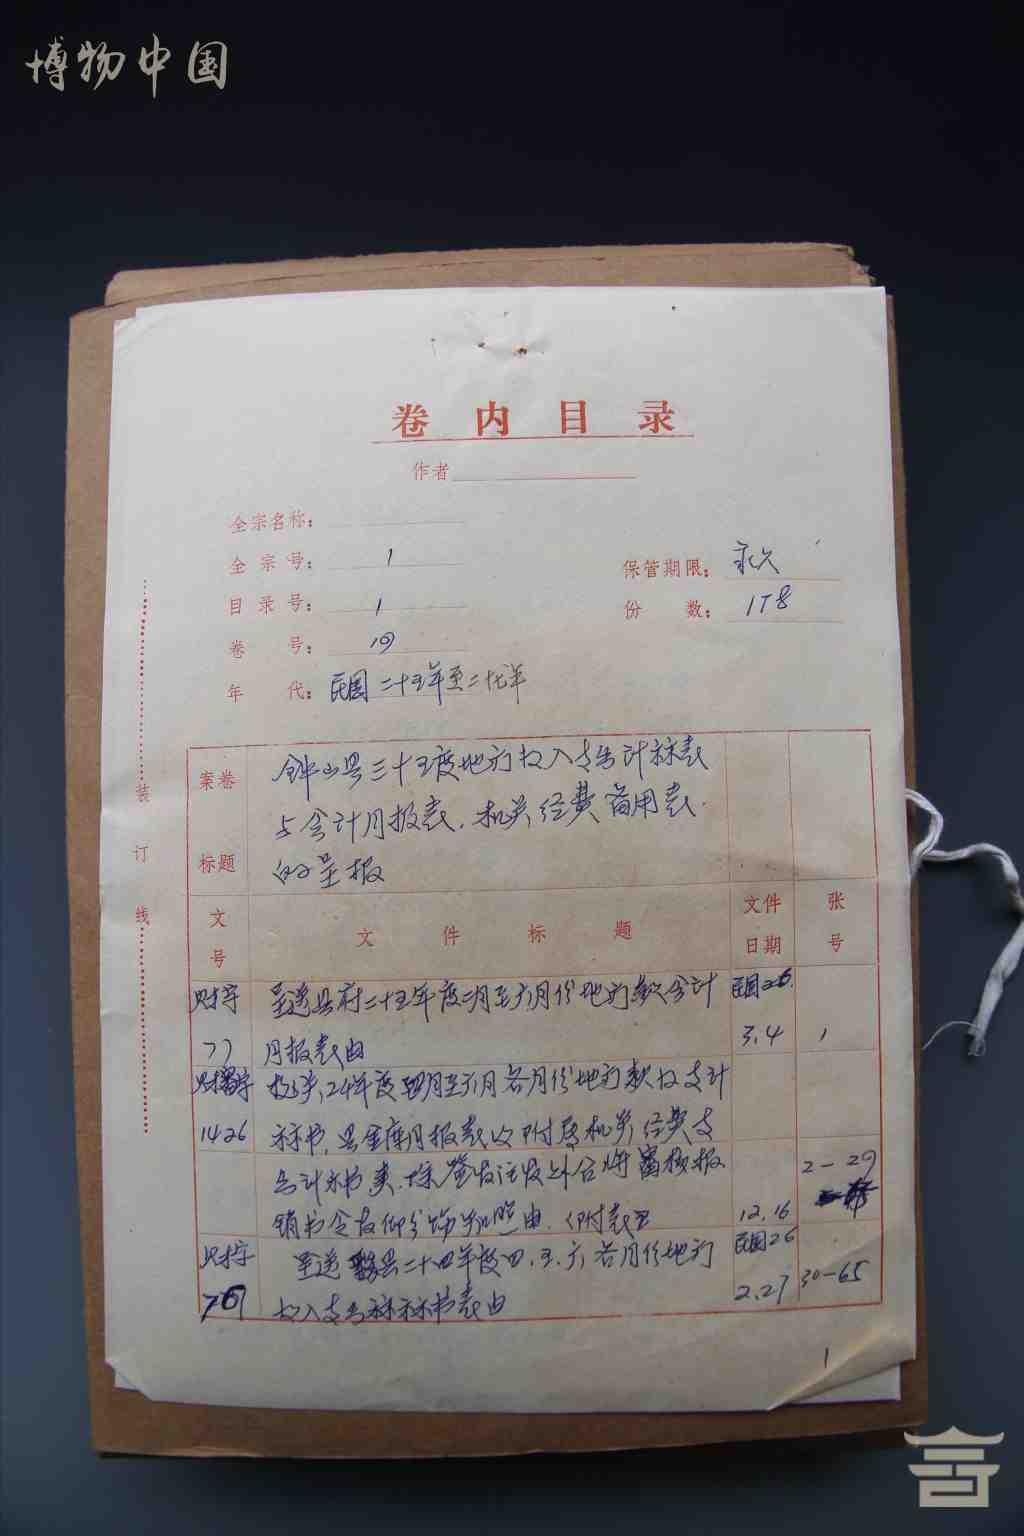 博物中国
卷内目录
作者
全宗名称：
全宗号： 1
保管期限： 永久
目录号： 1
份数： 178
卷号： 19
年代： 民国二十五年至二十七年
案卷标题
钟山县三十五度地方收入支出计算表
与会计月报表．机关经费备用表．
的呈报
文号
文件标题
文件日期
张号
财字
呈送县府二十五年度二月至六月份地方款会计
民国26.
77
月报表由
3.4
1
24年度四月至六月各月份地方款收支计
1426
算书，县金库月报表以附属机关经费支
出计算书
2-29
12.16
财字
呈送县二十四年度四．五．六各月份地方
民国26
769
收入支出书表由
2.27
30-65
装订线
1